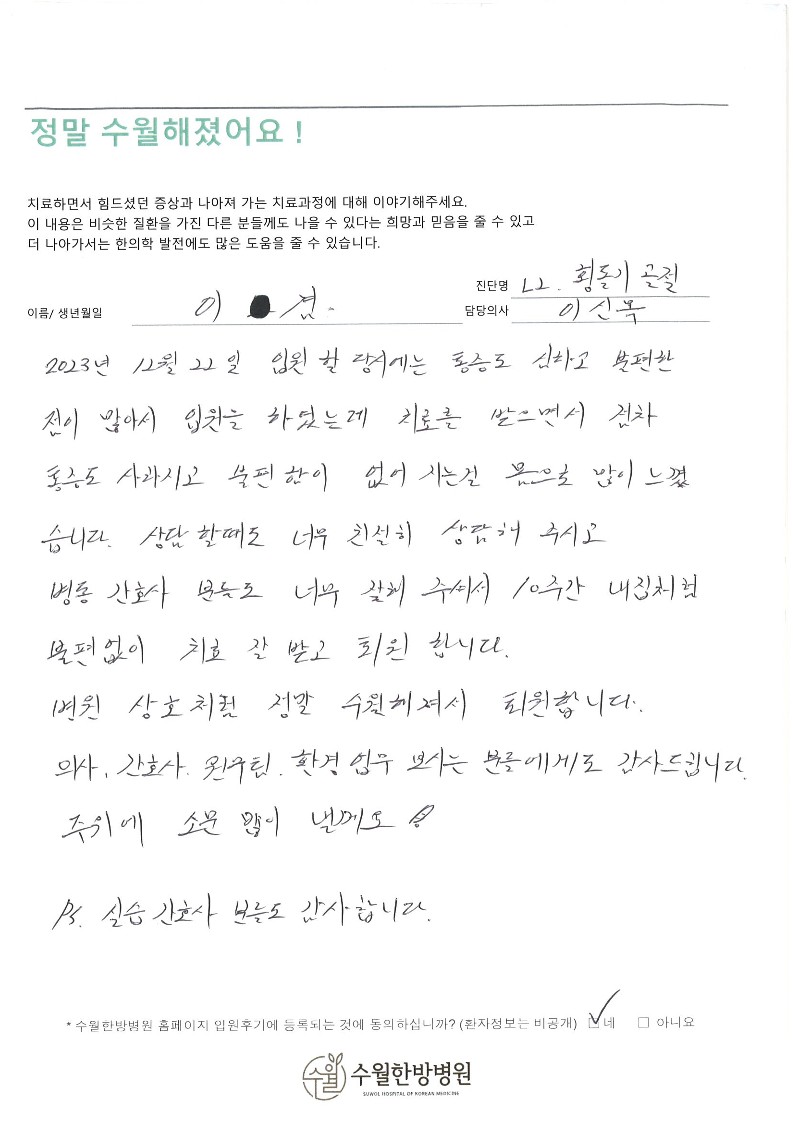 정말 수월해졌어요 !
치료하면서 힘드셨던 증상과 나아져 가는 치료과정에 대해 이야기해주세요.
이 내용은 비슷한 질환을 가진 다른 분들께도 나을 수 있다는 희망과 믿음을 줄 수 있고
더 나아가서는 한의학 발전에도 많은 도움을 줄 수 있습니다.
진단명 L2. 횡돌기 골절
이름/ 생년월일 이 겸
담당의사 이신목
2023년 12월 22일 입원 할 당시에는 통증도 심하고 불편한
점이 많아서 입원을 하였는데 치료를 받으면서 점차
통증도 사라지고 불편 한이 없어 지는걸 몸으로 많이 느꼈
습니다. 상담 할때도 너무 친절히 상담해 주시고
병동 간호사 분들도 너무 잘해 주셔서 10주간 내집처럼
불편없이 치료 잘 받고 퇴원 합니다.
병원 상호처럼 정말 수월해져서 퇴원합니다.
의사. 간호사. 원무팀. 환경 업무 보시는 분들에게도 감사드립니다.
주위에 소문 많이 낼께요
Ps. 실습 간호사 분들도 감사합니다.
* 수월한방병원 홈페이지 입원후기에 등록되는 것에 동의하십니까? (환자정보는 비공개) ☑ 네 □ 아니요
수월 수월한방병원
SUWOL HOSPITAL OF KOREAN MEDICINE